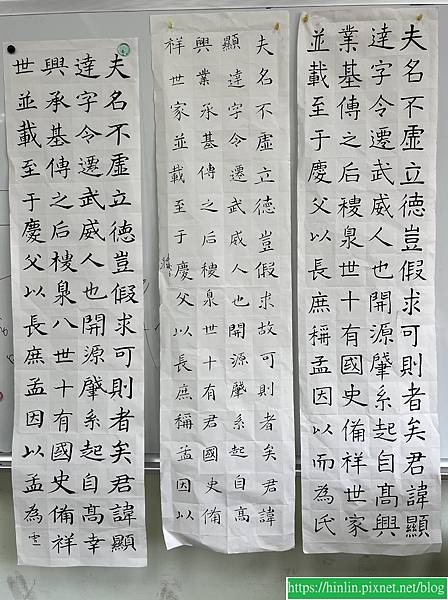 夫名不虛立德豈假求可則者矣君諱顯
達字令遷武威人也開源肇系起自高興
業基傳之后稷泉世十有國史備祥世家
並載至于慶父以長庶稱孟因以而為氏
夫名不虛立德豈假求故可則者矣君諱
顯達字令遷武威人也開源肇系起自高
興業承基傳之后稷泉世十有君國史備
祥世家並載至于慶父以長庶稱孟因以
夫名不虛立德豈假求可則者矣君諱顯
達字令遷武威人也開源肇系起自高幸
興承基傳之后稷泉八世十有國史備祥
世並載至于慶父以長庶孟因以孟為
https://hinlin.pixnet.net/blog